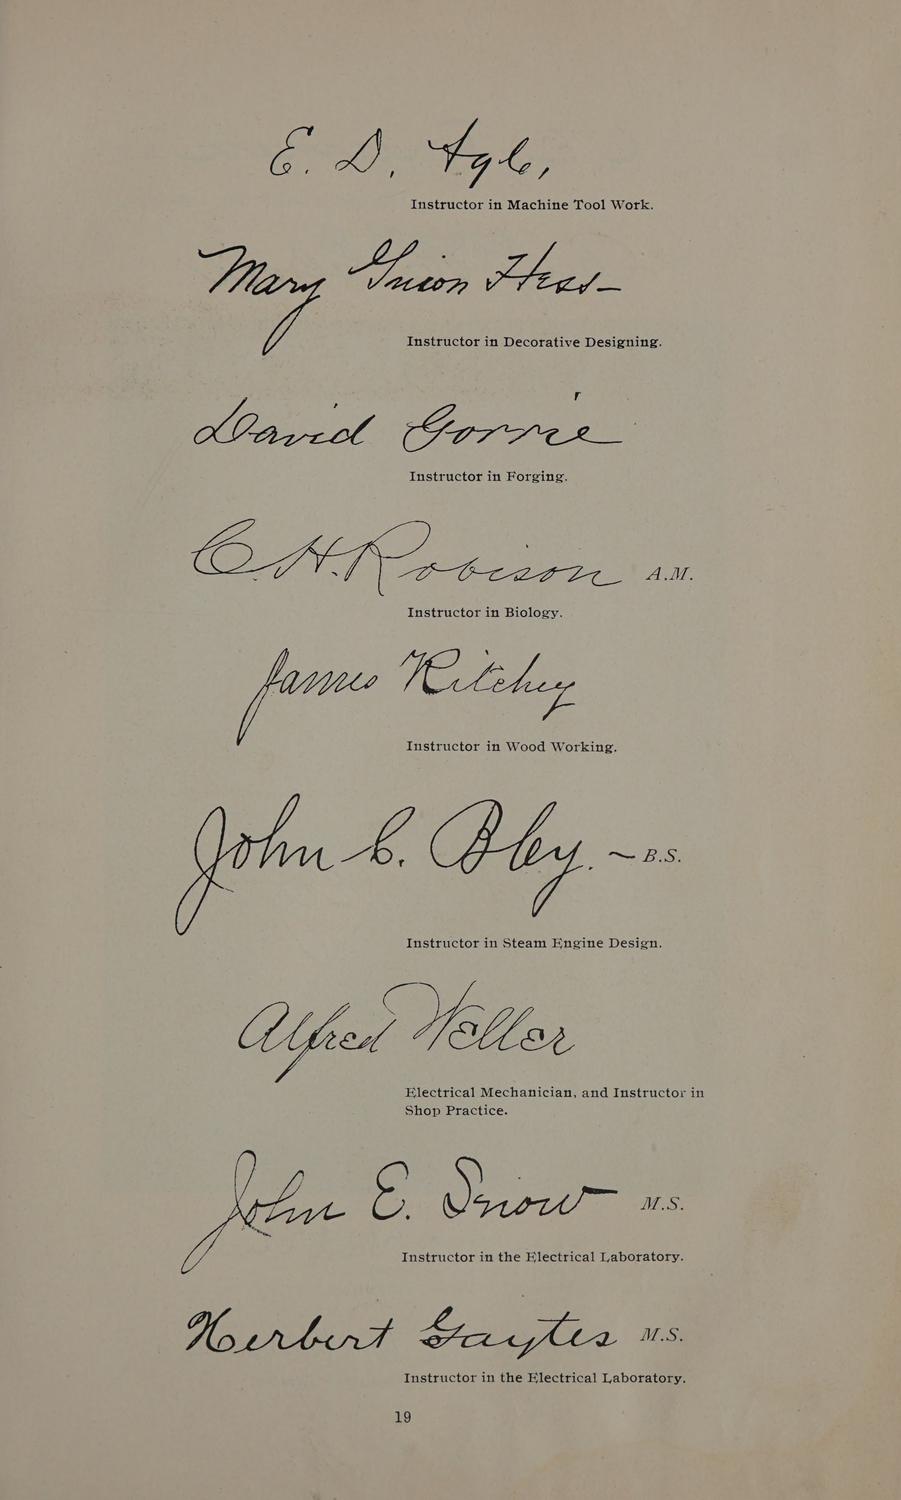 E. D. Agle,
Instructor in Machine Tool Work.
Mary Hess
Instructor in Decorative Designing.
David Gorrie
Instructor in Forging.
C. H. Robison A.M.
Instructor in Biology.
James Ritchey
Instructor in Wood Working.
John C. Bley. B.S.
Instructor in Steam Engine Design.
Alfred Weller
Electrical Mechanician, and Instructor in
Shop Practice.
John E. Snow M.S.
Instructor in the Electrical Laboratory.
Herbert Gaytes M.S.
Instructor in the Electrical Laboratory.
19